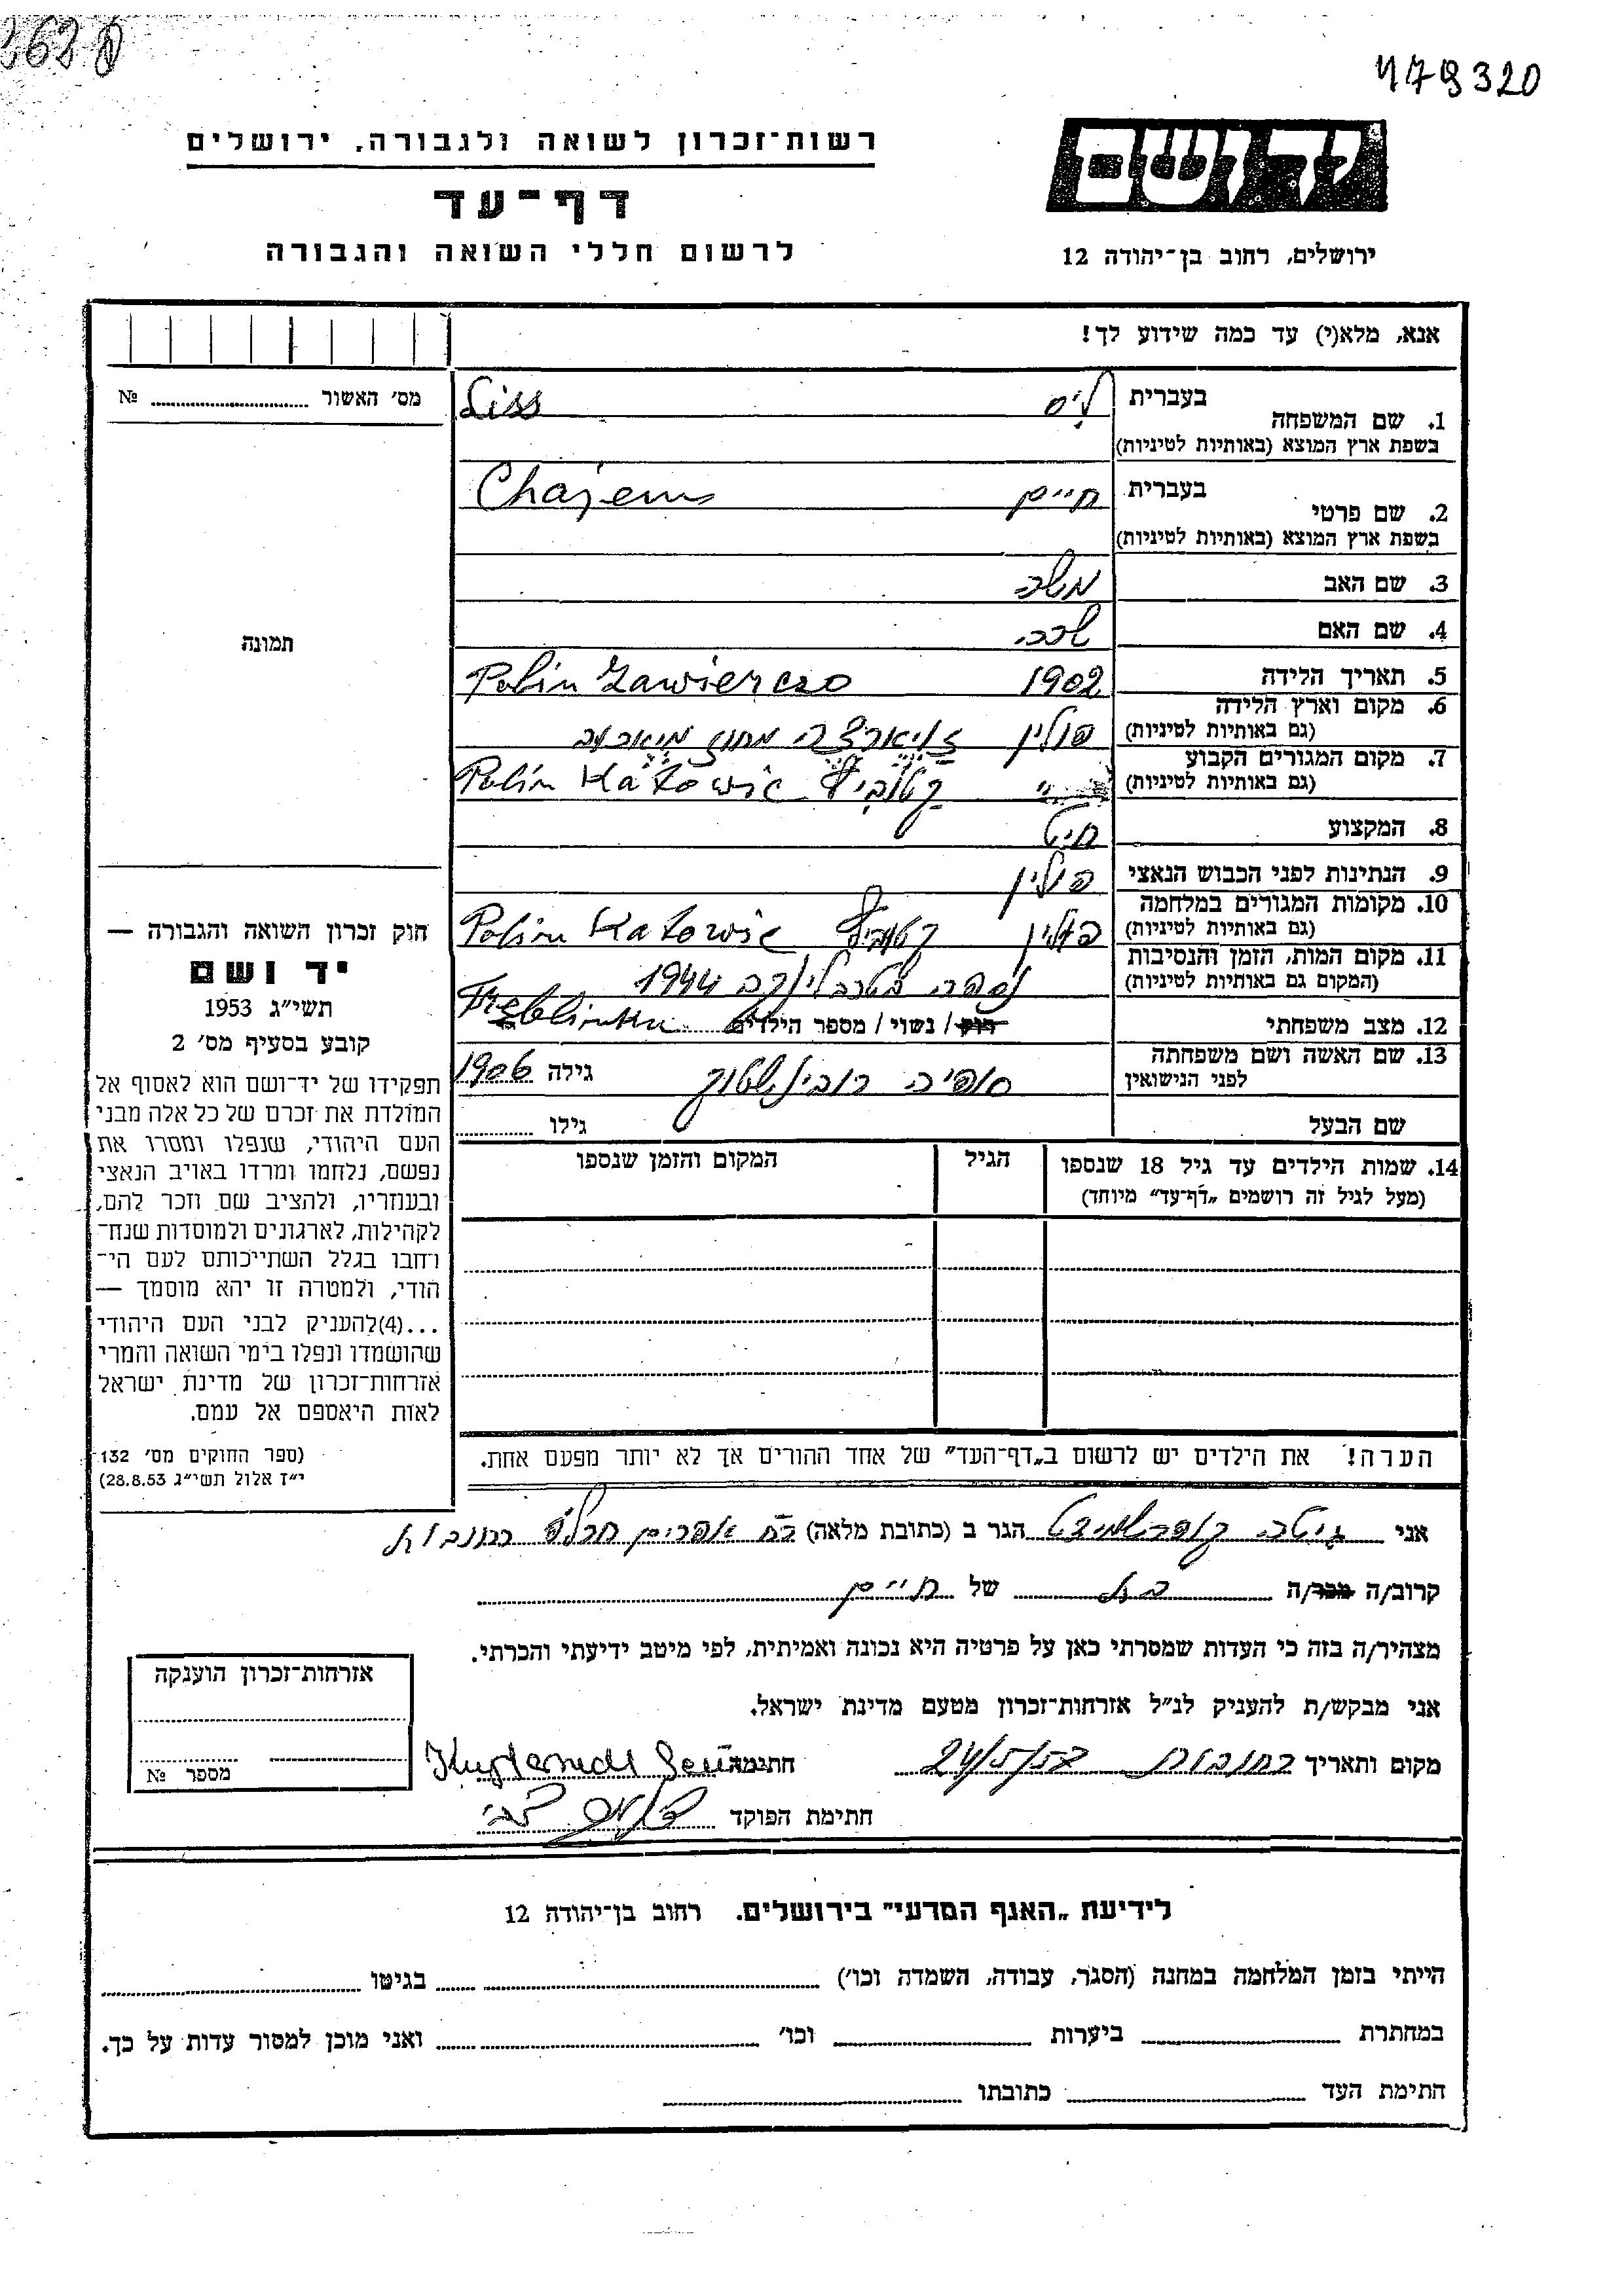 179320
יד ושם
ירושלים, רחוב בן־יהודה 12
רשות־זכרון לשואה ולגבורה, ירושלים
דף־עד
לרשום חללי השואה והגבורה
אנא, מלא(י) עד כמה שידוע לך!
מס' האשור № ..........
תמונה
חוק זכרון השואה והגבורה —
יד ושם
תשי״ג 1953
קובע בסעיף מס' 2
תפקידו של יד־ושם הוא לאסוף אל
המולדת את זכרם של כל אלה מבני
העם היהודי, שנפלו ומסרו את
נפשם, נלחמו ומרדו באויב הנאצי
ובעוזריו, ולהציב שם וזכר להם,
לקהילות, לארגונים ולמוסדות שנח־
רחבו בגלל השתייכותם לעם הי־
הודי, ולמטרה זו יהא מוסמך —
...(4)להעניק לבני העם היהודי
שהושמדו ונפלו בימי השואה והמרי
אזרחות־זכרון של מדינת ישראל
לאות היאספם אל עמם.
(ספר החוקים מס' 132
י״ז אלול תשי״ג 28.8.53)
1. שם המשפחה בעברית ליס Liss
בשפת ארץ המוצא (באותיות לטיניות)
2. שם פרטי בעברית חיים Chajem
בשפת ארץ המוצא (באותיות לטיניות)
3. שם האב משה
4. שם האם
5. תאריך הלידה 1902 Polin Zawierczo
6. מקום וארץ הלידה
(גם באותיות לטיניות) פולין
7. מקום המגורים הקבוע
(גם באותיות לטיניות) קטוביץ Polin Katowic
8. המקצוע חייט
9. הנתינות לפני הכבוש הנאצי פולין
10. מקומות המגורים במלחמה
(גם באותיות לטיניות) פולין קטוביץ Polin Katowic
11. מקום המות, הזמן והנסיבות
(המקום גם באותיות לטיניות) נספה בטרבלינקה 1944
Treblinka
12. מצב משפחתי רוק / נשוי / מספר הילדים
13. שם האשה ושם משפחתה
לפני הנישואין סופיה רובינשטוק גילה 1906
שם הבעל גילו ..........
14. שמות הילדים עד גיל 18 שנספו הגיל המקום והזמן שנספו
(מעל לגיל זה רושמים „דף־עד״ מיוחד)
הערה! את הילדים יש לרשום ב„דף־העד״ של אחד ההורים אך לא יותר מפעם אחת.
אני גיטה קופרשמידט הגר ב (כתובת מלאה) רח אפרים רחובות
קרוב/ה מכר/ה בת של חיים
מצהיר/ה בזה כי העדות שמסרתי כאן על פרטיה היא נכונה ואמיתית, לפי מיטב ידיעתי והכרתי.
אני מבקש/ת להעניק לנ״ל אזרחות־זכרון מטעם מדינת ישראל.
מקום ותאריך רחובות 24/5/57 חתימה
חתימת הפוקד
אזרחות־זכרון הוענקה
מספר №
לידיעת „האגף המדעי״ בירושלים. רחוב בן־יהודה 12
הייתי בזמן המלחמה במחנה (הסגר, עבודה, השמדה וכו') .......... בגיטו ..........
במחתרת .......... ביערות .......... וכו' .......... ואני מוכן למסור עדות על כך.
חתימת העד .......... כתובתו ..........